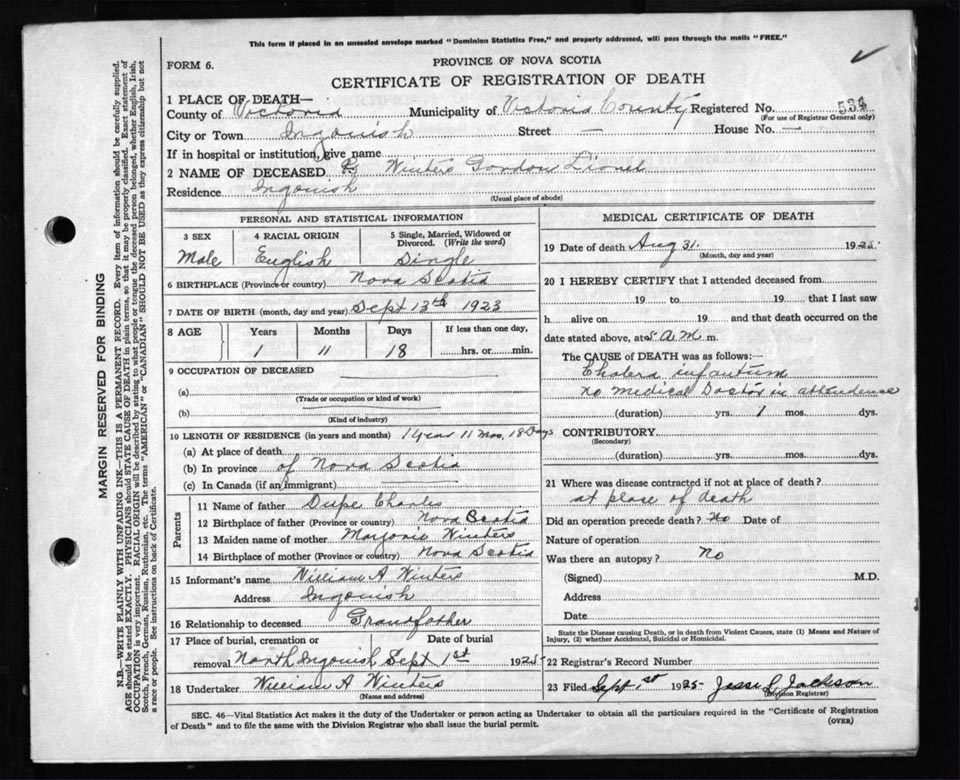 This form if placed in an unsealed envelope marked "Dominion Statistics Free," and properly addressed, will pass through the mails "FREE."
FORM 6.
PROVINCE OF NOVA SCOTIA
CERTIFICATE OF REGISTRATION OF DEATH
1 PLACE OF DEATH—
County of Victoria Municipality of Victoria County Registered No. 536
(For use of Registrar General only)
City or Town Ingonish Street — House No. —
If in hospital or institution, give name
2 NAME OF DECEASED Winters Gordon Lionel
Residence Ingonish
(Usual place of abode)
PERSONAL AND STATISTICAL INFORMATION
3 SEX 4 RACIAL ORIGIN 5 Single, Married, Widowed or Divorced. (Write the word)
Male English Single
6 BIRTHPLACE (Province or country) Nova Scotia
7 DATE OF BIRTH (month, day and year) Sept 13th 1923
8 AGE Years Months Days If less than one day,
1 11 18 hrs. or min.
9 OCCUPATION OF DECEASED
(a)
(Trade or occupation or kind of work)
(b)
(Kind of industry)
10 LENGTH OF RESIDENCE (in years and months) 1 year 11 Mos. 18 Days
(a) At place of death
(b) In province of Nova Scotia
(c) In Canada (if an immigrant)
Parents
11 Name of father Dupe Charles
12 Birthplace of father (Province or country) Nova Scotia
13 Maiden name of mother Marjorie Winters
14 Birthplace of mother (Province or country) Nova Scotia
15 Informant's name William A Winters
Address Ingonish
16 Relationship to deceased Grandfather
17 Place of burial, cremation or Date of burial
removal North Ingonish Sept 1st 1925
18 Undertaker William A Winters
(Name and address)
MEDICAL CERTIFICATE OF DEATH
19 Date of death Aug 31. 1925
(Month, day and year)
20 I HEREBY CERTIFY that I attended deceased from
19 to 19 that I last saw
h alive on 19 and that death occurred on the
date stated above, at 5 A.M. m.
The CAUSE OF DEATH was as follows:—
Cholera infantum
no medical Doctor in attendence
(duration) yrs. 1 mos. dys.
CONTRIBUTORY
(Secondary)
(duration) yrs. mos. dys.
21 Where was disease contracted if not at place of death?
at place of death
Did an operation precede death? no Date of
Nature of operation
Was there an autopsy? No
(Signed) M.D.
Address
Date
State the Disease causing Death, or in death from Violent Causes, state (1) Means and Nature of Injury, (2) whether Accidental, Suicidal or Homicidal.
22 Registrar's Record Number
23 Filed Sept 1st 1925 Jesse L Jackson
(Division Registrar)
SEC. 46—Vital Statistics Act makes it the duty of the Undertaker or person acting as Undertaker to obtain all the particulars required in the "Certificate of Registration
of Death" and to file the same with the Division Registrar who shall issue the burial permit. (OVER)
MARGIN RESERVED FOR BINDING
N.B.—WRITE PLAINLY WITH UNFADING INK—THIS IS A PERMANENT RECORD. Every item of information should be carefully supplied.
AGE should be stated EXACTLY. PHYSICIANS should STATE CAUSE OF DEATH in plain terms, so that it may be properly classified. Exact statement of
OCCUPATION is very important. RACIAL ORIGIN will be described by stating to what people or tongue the deceased person belonged, whether English, Irish,
Scotch, French, German, Russian, Ruthenian, etc. The terms "AMERICAN" or "CANADIAN" SHOULD NOT BE USED as they express citizenship but not
a race or people. See instructions on back of Certificate.